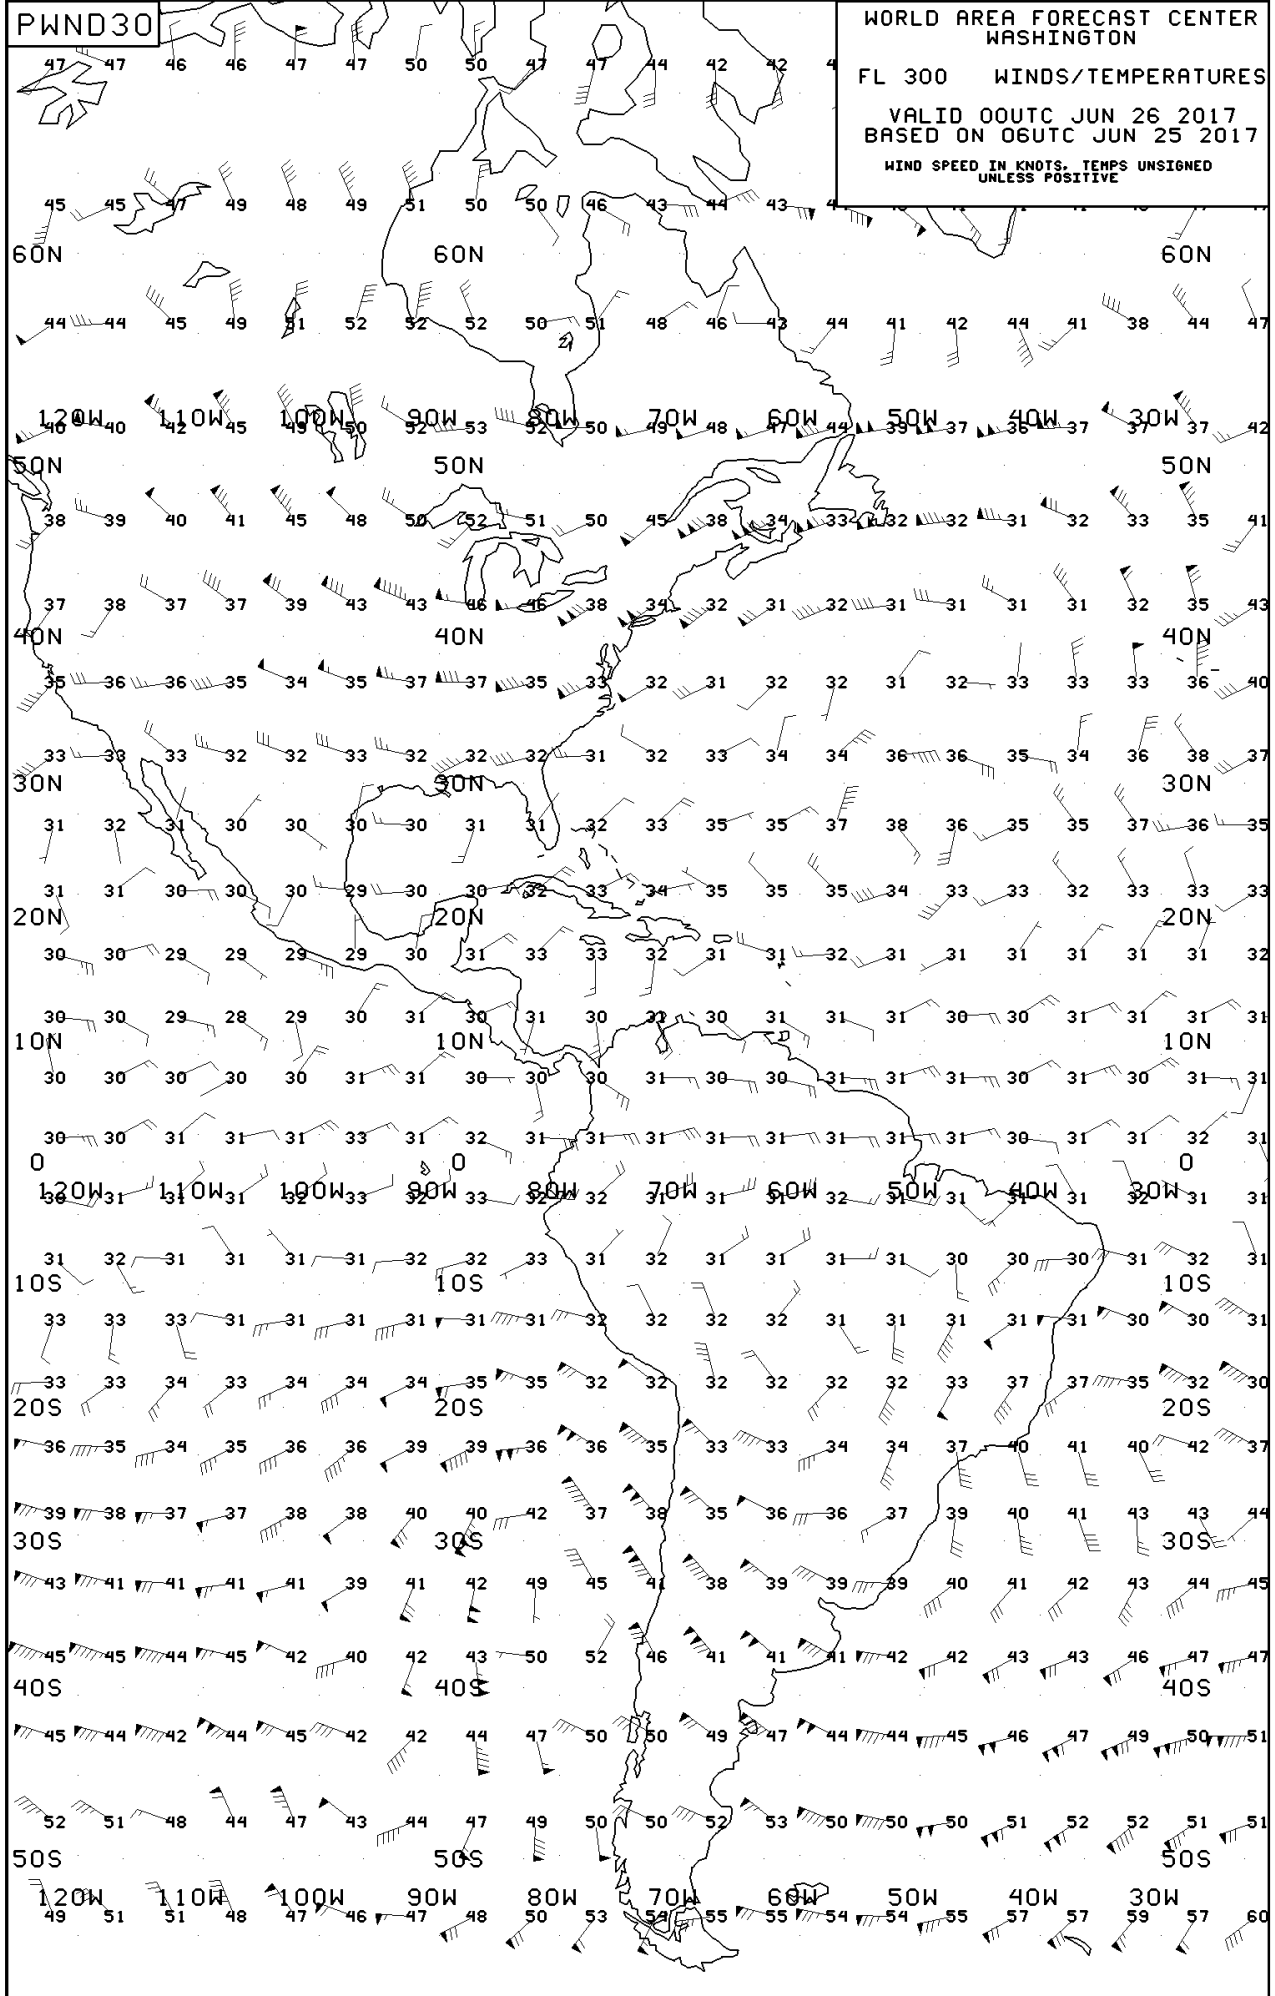 PWND30
WORLD AREA FORECAST CENTER
WASHINGTON
FL 300 WINDS/TEMPERATURES
VALID 00UTC JUN 26 2017
BASED ON 06UTC JUN 25 2017
WIND SPEED IN KNOTS, TEMPS UNSIGNED
UNLESS POSITIVE
47 47 46 46 47 47 50 50 47 47 44 42 42
45 45 47 49 48 49 51 50 50 46 43 44 43
60N 60N 60N
44 44 45 49 51 52 52 52 50 51 48 46 43 44 41 42 44 41 38 44 47
120W 110W 100W 90W 80W 70W 60W 50W 40W 30W
40 40 42 45 49 50 52 53 52 50 49 48 47 44 39 37 36 37 37 37 42
50N 50N 50N
38 39 40 41 45 48 50 52 51 50 45 38 34 33 32 32 31 32 33 35 41
37 38 37 37 39 43 43 46 46 38 34 32 31 32 31 31 31 31 32 35 43
40N 40N 40N
35 36 36 35 34 35 37 37 35 33 32 31 32 32 31 32 33 33 33 36 40
33 33 33 32 32 33 32 32 32 31 32 33 34 34 36 36 35 34 36 38 37
30N 30N 30N
31 32 31 30 30 30 30 31 31 32 33 35 35 37 38 36 35 35 37 36 35
31 31 30 30 30 29 30 30 32 33 34 35 35 35 34 33 33 32 33 33 33
20N 20N 20N
30 30 29 29 29 29 30 31 33 33 32 31 31 32 31 31 31 31 31 31 32
30 30 29 28 29 30 31 30 31 30 31 30 31 31 31 30 30 31 31 31 31
10N 10N 10N
30 30 30 30 30 31 31 30 30 30 31 30 30 31 31 31 30 31 30 31 31
30 30 31 31 31 33 31 32 31 31 31 31 31 31 31 31 30 31 31 32 31
0 0 0
120W 110W 100W 90W 80W 70W 60W 50W 40W 30W
30 31 31 31 32 33 32 33 32 32 31 31 31 32 31 31 31 31 32 31 31
31 32 31 31 31 31 32 32 33 31 32 31 31 31 31 30 30 30 31 32 31
10S 10S 10S
33 33 33 31 31 31 31 31 31 32 32 32 32 31 31 31 31 31 30 30 31
33 33 34 33 34 34 34 35 35 32 32 32 32 32 32 33 37 37 35 32 30
20S 20S 20S
36 35 34 35 36 36 39 39 36 36 35 33 33 34 34 37 40 41 40 42 37
39 38 37 37 38 38 40 40 42 37 38 35 36 36 37 39 40 41 43 43 44
30S 30S 30S
43 41 41 41 41 39 41 42 49 45 41 38 39 39 39 40 41 42 43 44 45
45 45 44 45 42 40 42 43 50 52 46 41 41 41 42 42 43 43 46 47 47
40S 40S 40S
45 44 42 44 45 42 42 44 47 50 50 49 47 44 44 45 46 47 49 50 51
52 51 48 44 47 43 44 47 49 50 50 52 53 50 50 50 51 52 52 51 51
50S 50S 50S
120W 110W 100W 90W 80W 70W 60W 50W 40W 30W
49 51 51 48 47 46 47 48 50 53 54 55 55 54 54 55 57 57 59 57 60